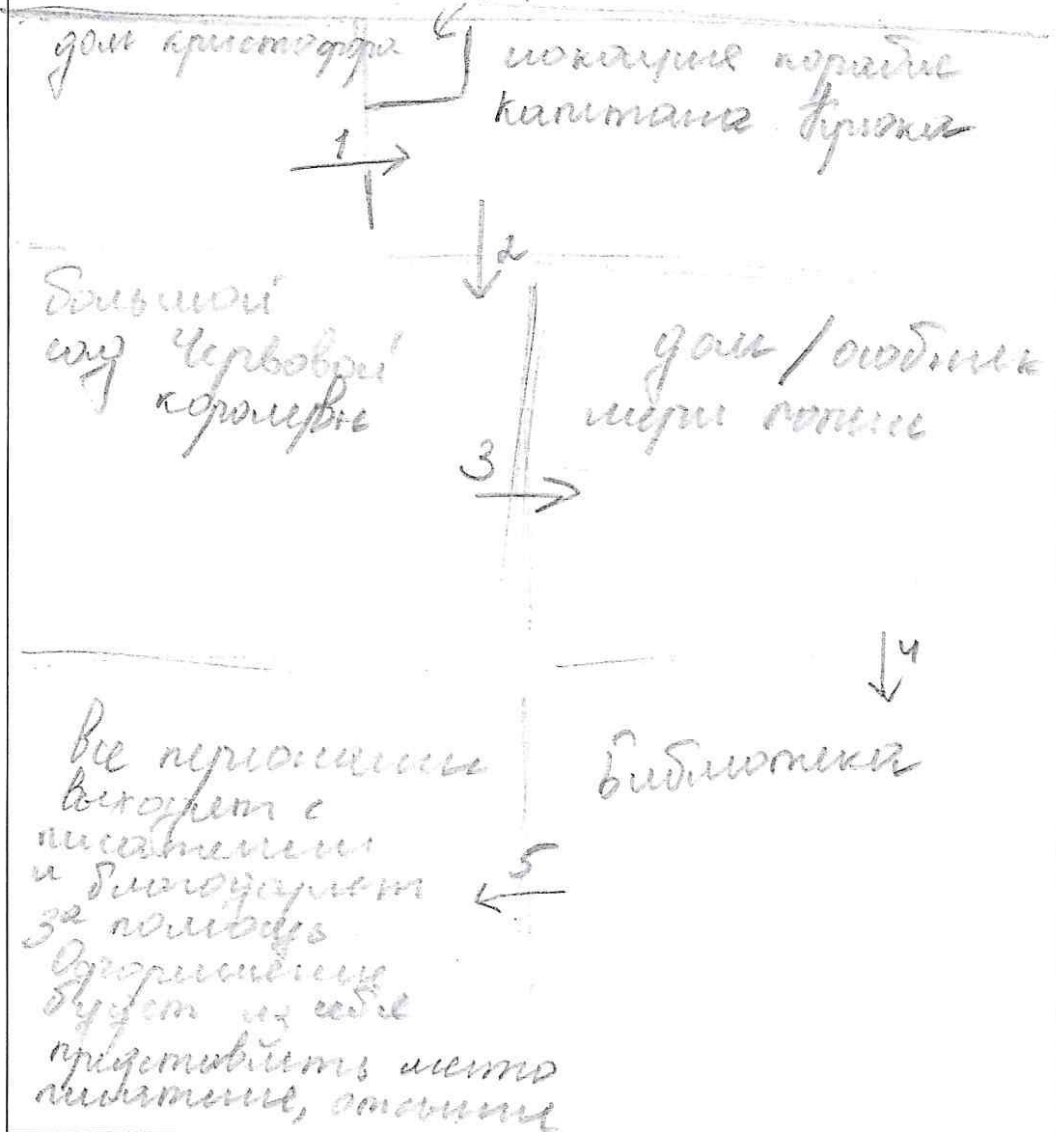 дом кристофора
локация корабле
капитана Крюка
1
2
большой
сад Червовой
королевы
дом / особняк
мери попинс
3
4
все персонажи
выходят с
писателем
и благодарят
за помощь
Оформление
будет из себя
представлять место
писателе,
библиотека
5